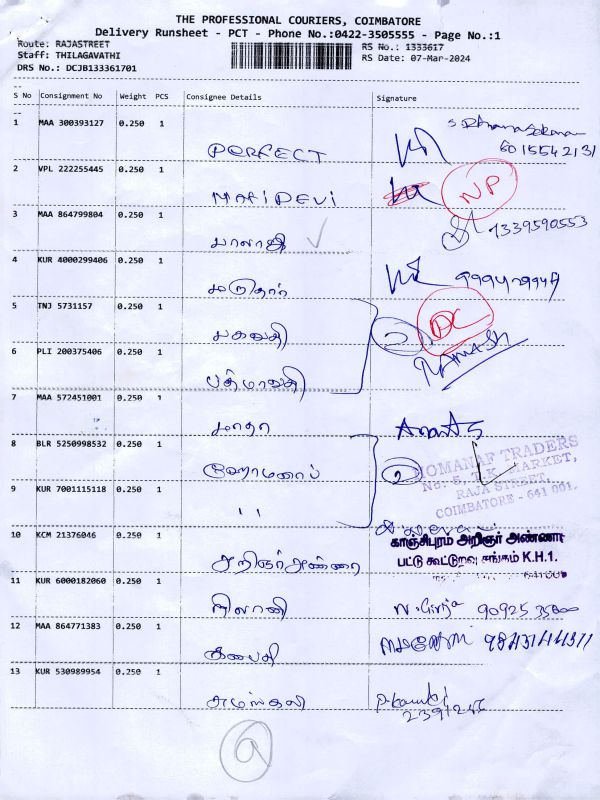 THE PROFESSIONAL COURIERS, COIMBATORE
Delivery Runsheet - PCT - Phone No.:0422-3505555 - Page No.:1
Route: RAJASTREET
Staff: THILAGAVATHI
DRS No.: DCJB133361701
RS No.: 1333617
RS Date: 07-Mar-2024
S No Consignment No Weight PCS Consignee Details Signature
1 MAA 300393127 0.250 1 PERFECT
6015542131
2 VPL 222255445 0.250 1 MARIDEVI NP
3 MAA 864799804 0.250 1 பாலாஜி 7339590553
4 KUR 4000299406 0.250 1
5 TNJ 5731157 0.250 1 பகவதி DC
6 PLI 200375406 0.250 1 பத்மாவதி
7 MAA 572451001 0.250 1
8 BLR 5250998532 0.250 1 2
HOMANAF TRADERS
No: 5, T.K. MARKET,
RAJA STREET,
COIMBATORE - 641 001.
9 KUR 7001115118 0.250 1 ''
10 KCM 21376046 0.250 1 அறிஞர் அண்ணா
காஞ்சிபுரம் அறிஞர் அண்ணா
பட்டு கூட்டுறவு சங்கம் K.H.1.
11 KUR 6000182060 0.250 1 N. Girija
12 MAA 864771383 0.250 1
13 KUR 530989954 0.250 1